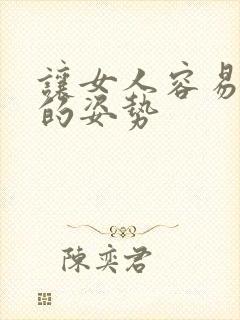 讓女人容易
的姿勢
陳奕君